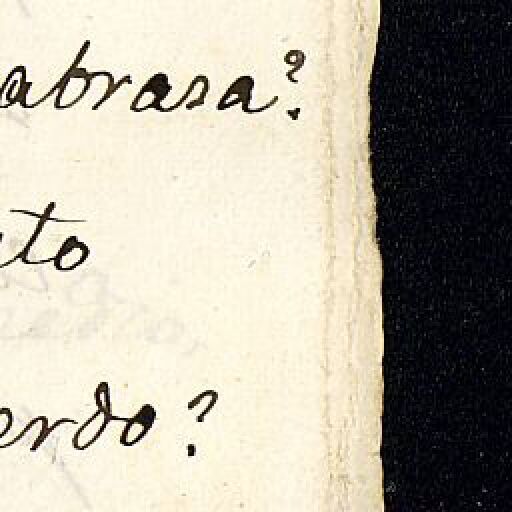 abrasa?
to
erdo?